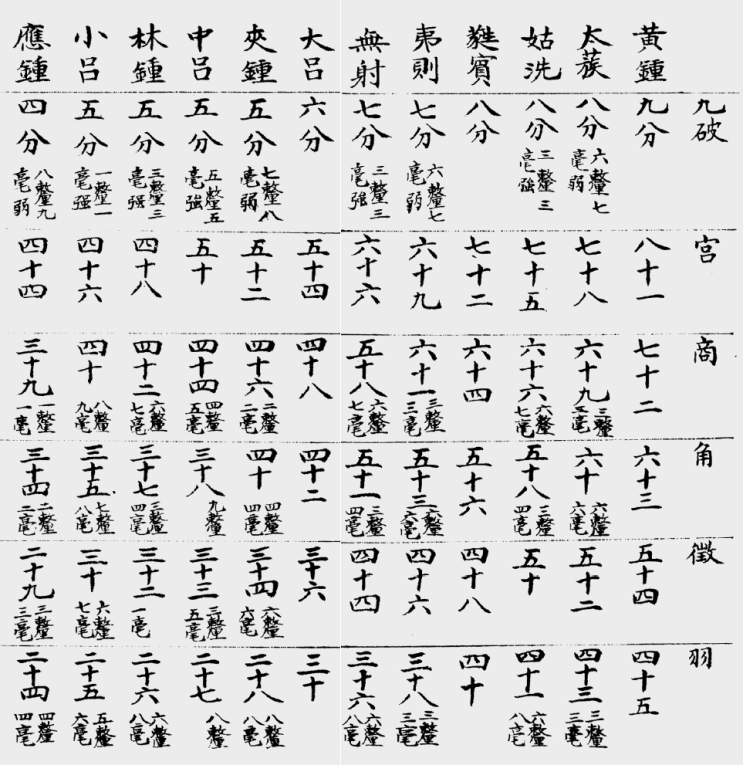 九破 宮 商 角 徵 羽
黃鍾 九分 八十一 七十二 六十三 五十四 四十五
太蔟 八分 六釐七毫弱 七十八 六十九 三釐毫 六十 六釐六毫 五十二 四十三 三釐三毫
姑洗 八分 三釐三毫強 七十五 六十六 六釐七毫 五十八 三釐四毫 五十 四十一 六釐八毫
蕤賓 八分 七十二 六十四 五十六 四十八 四十
夷則 七分 六釐七毫弱 六十九 六十一 三釐三毫 五十三 釐毫 四十六 三十八 三釐三毫
無射 七分 三釐三毫强 六十六 五十八 六釐七毫 五十一 三釐四毫 四十四 三十六 六釐八毫
大呂 六分 五十四 四十八 四十二 三十六 三十
夾鍾 五分 七釐八毫弱 五十二 四十六 二釐二毫 四十 四釐四毫 三十四 六釐六毫 二十八 八釐八毫
中呂 五分 五釐五毫強 五十 四十四 四釐五毫 三十八 九釐 三十三 三釐五毫 二十七 八釐
林鍾 五分 三釐三毫强 四十八 四十二 六釐七毫 三十七 三釐四毫 三十二 一毫 二十六 六釐八毫
小呂 五分 一釐一毫强 四十六 四十 八釐九毫 三十五 七釐八毫 三十 六釐七毫 二十五 五釐六毫
應鍾 四分 八釐九毫弱 四十四 三十九 一釐一毫 三十四 二釐二毫 二十九 三釐三毫 二十四 四釐四毫